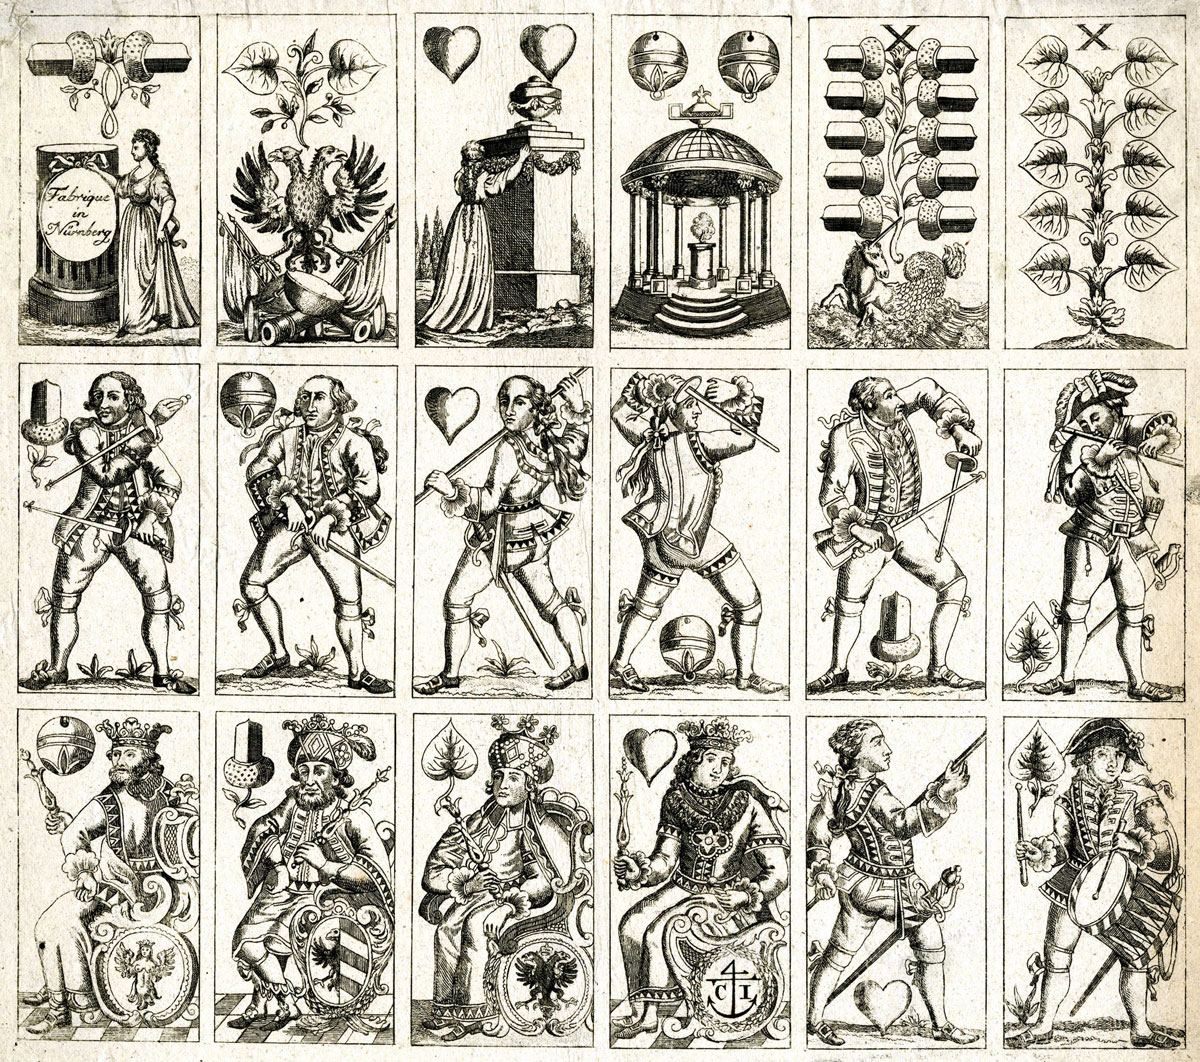 Fabrique
in
Nürnberg
X
X
4
C I